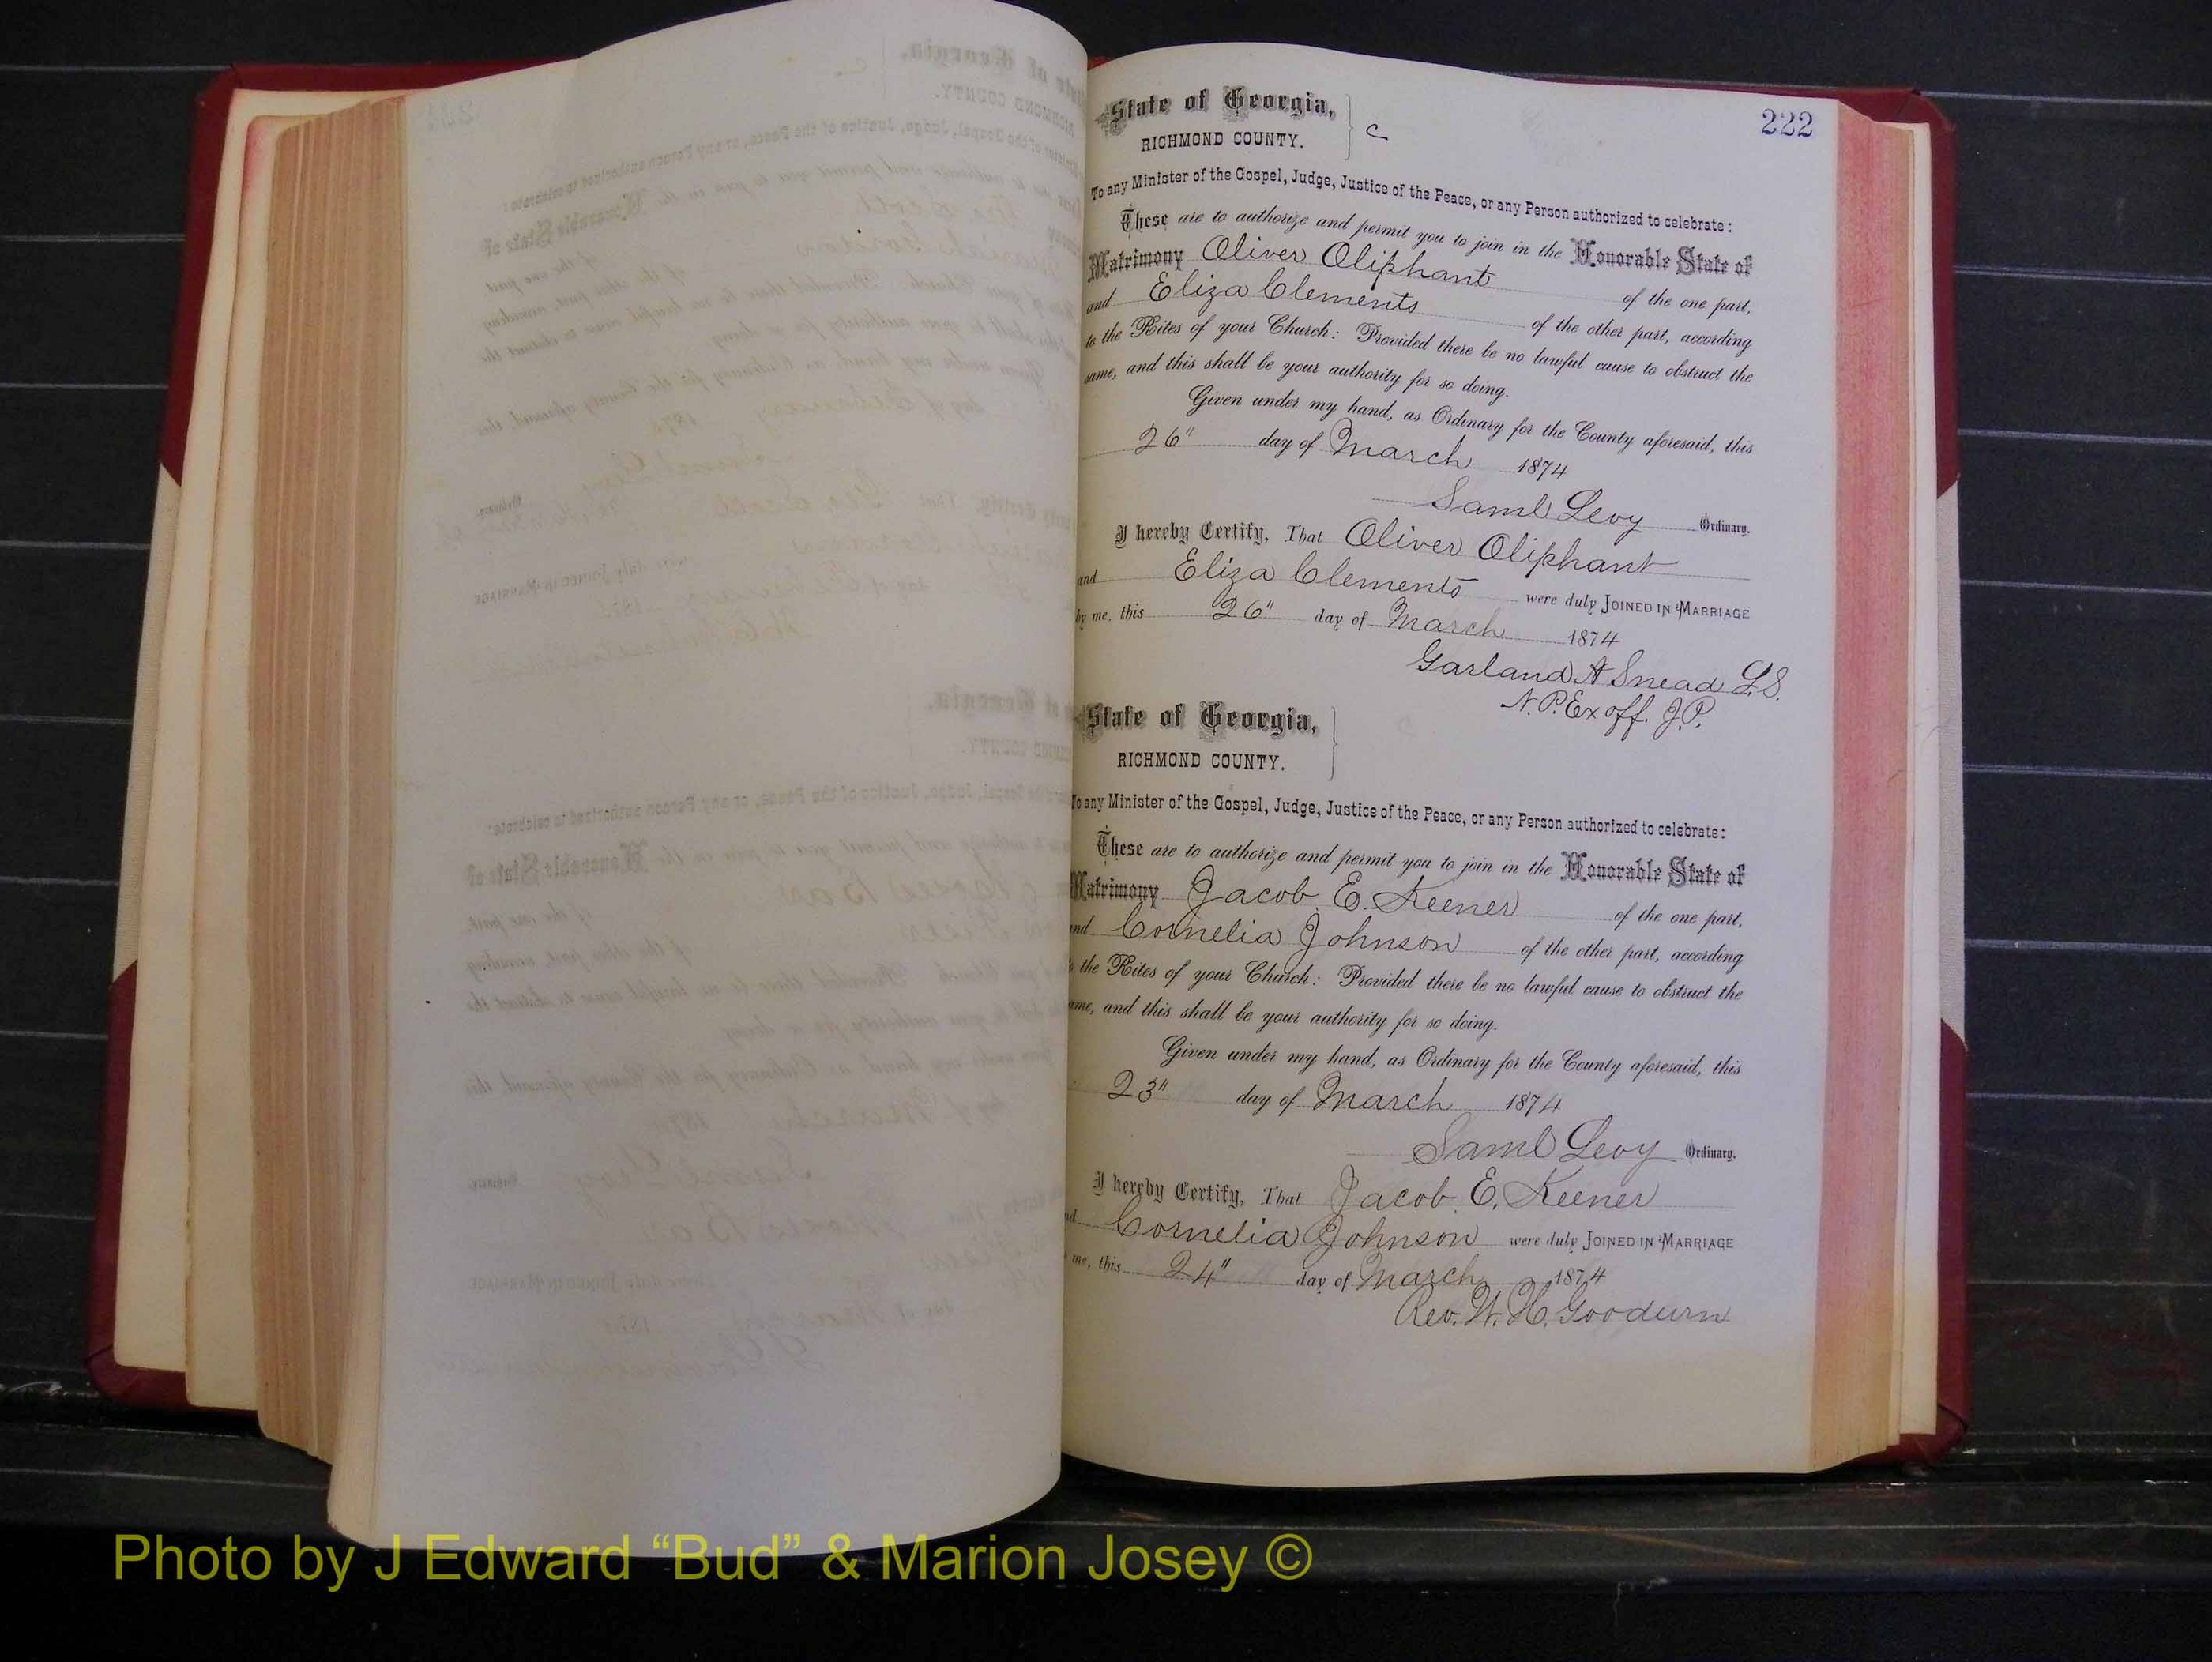 222
State of Georgia,
RICHMOND COUNTY.
C
To any Minister of the Gospel, Judge, Justice of the Peace, or any Person authorized to celebrate:
These are to authorize and permit you to join in the Honorable State of
Matrimony Oliver Oliphant of the one part,
and Eliza Clements of the other part, according
to the Rites of your Church: Provided there be no lawful cause to obstruct the
same, and this shall be your authority for so doing.
Given under my hand, as Ordinary for the County aforesaid, this
26" day of March 1874
Saml Levy Ordinary.
I hereby Certify, That Oliver Oliphant
and Eliza Clements were duly JOINED IN MARRIAGE
by me, this 26" day of March 1874
Garland A Snead L.S.
N.P. Ex off. J.P.
State of Georgia,
RICHMOND COUNTY.
To any Minister of the Gospel, Judge, Justice of the Peace, or any Person authorized to celebrate:
These are to authorize and permit you to join in the Honorable State of
Matrimony Jacob E. Keener of the one part,
and Cornelia Johnson of the other part, according
to the Rites of your Church: Provided there be no lawful cause to obstruct the
same, and this shall be your authority for so doing.
Given under my hand, as Ordinary for the County aforesaid, this
23" day of March 1874
Saml Levy Ordinary.
I hereby Certify, That Jacob E. Keener
and Cornelia Johnson were duly JOINED IN MARRIAGE
me, this 24" day of March 1874
Rev. W. H. Goodwin
Photo by J Edward “Bud” & Marion Josey ©